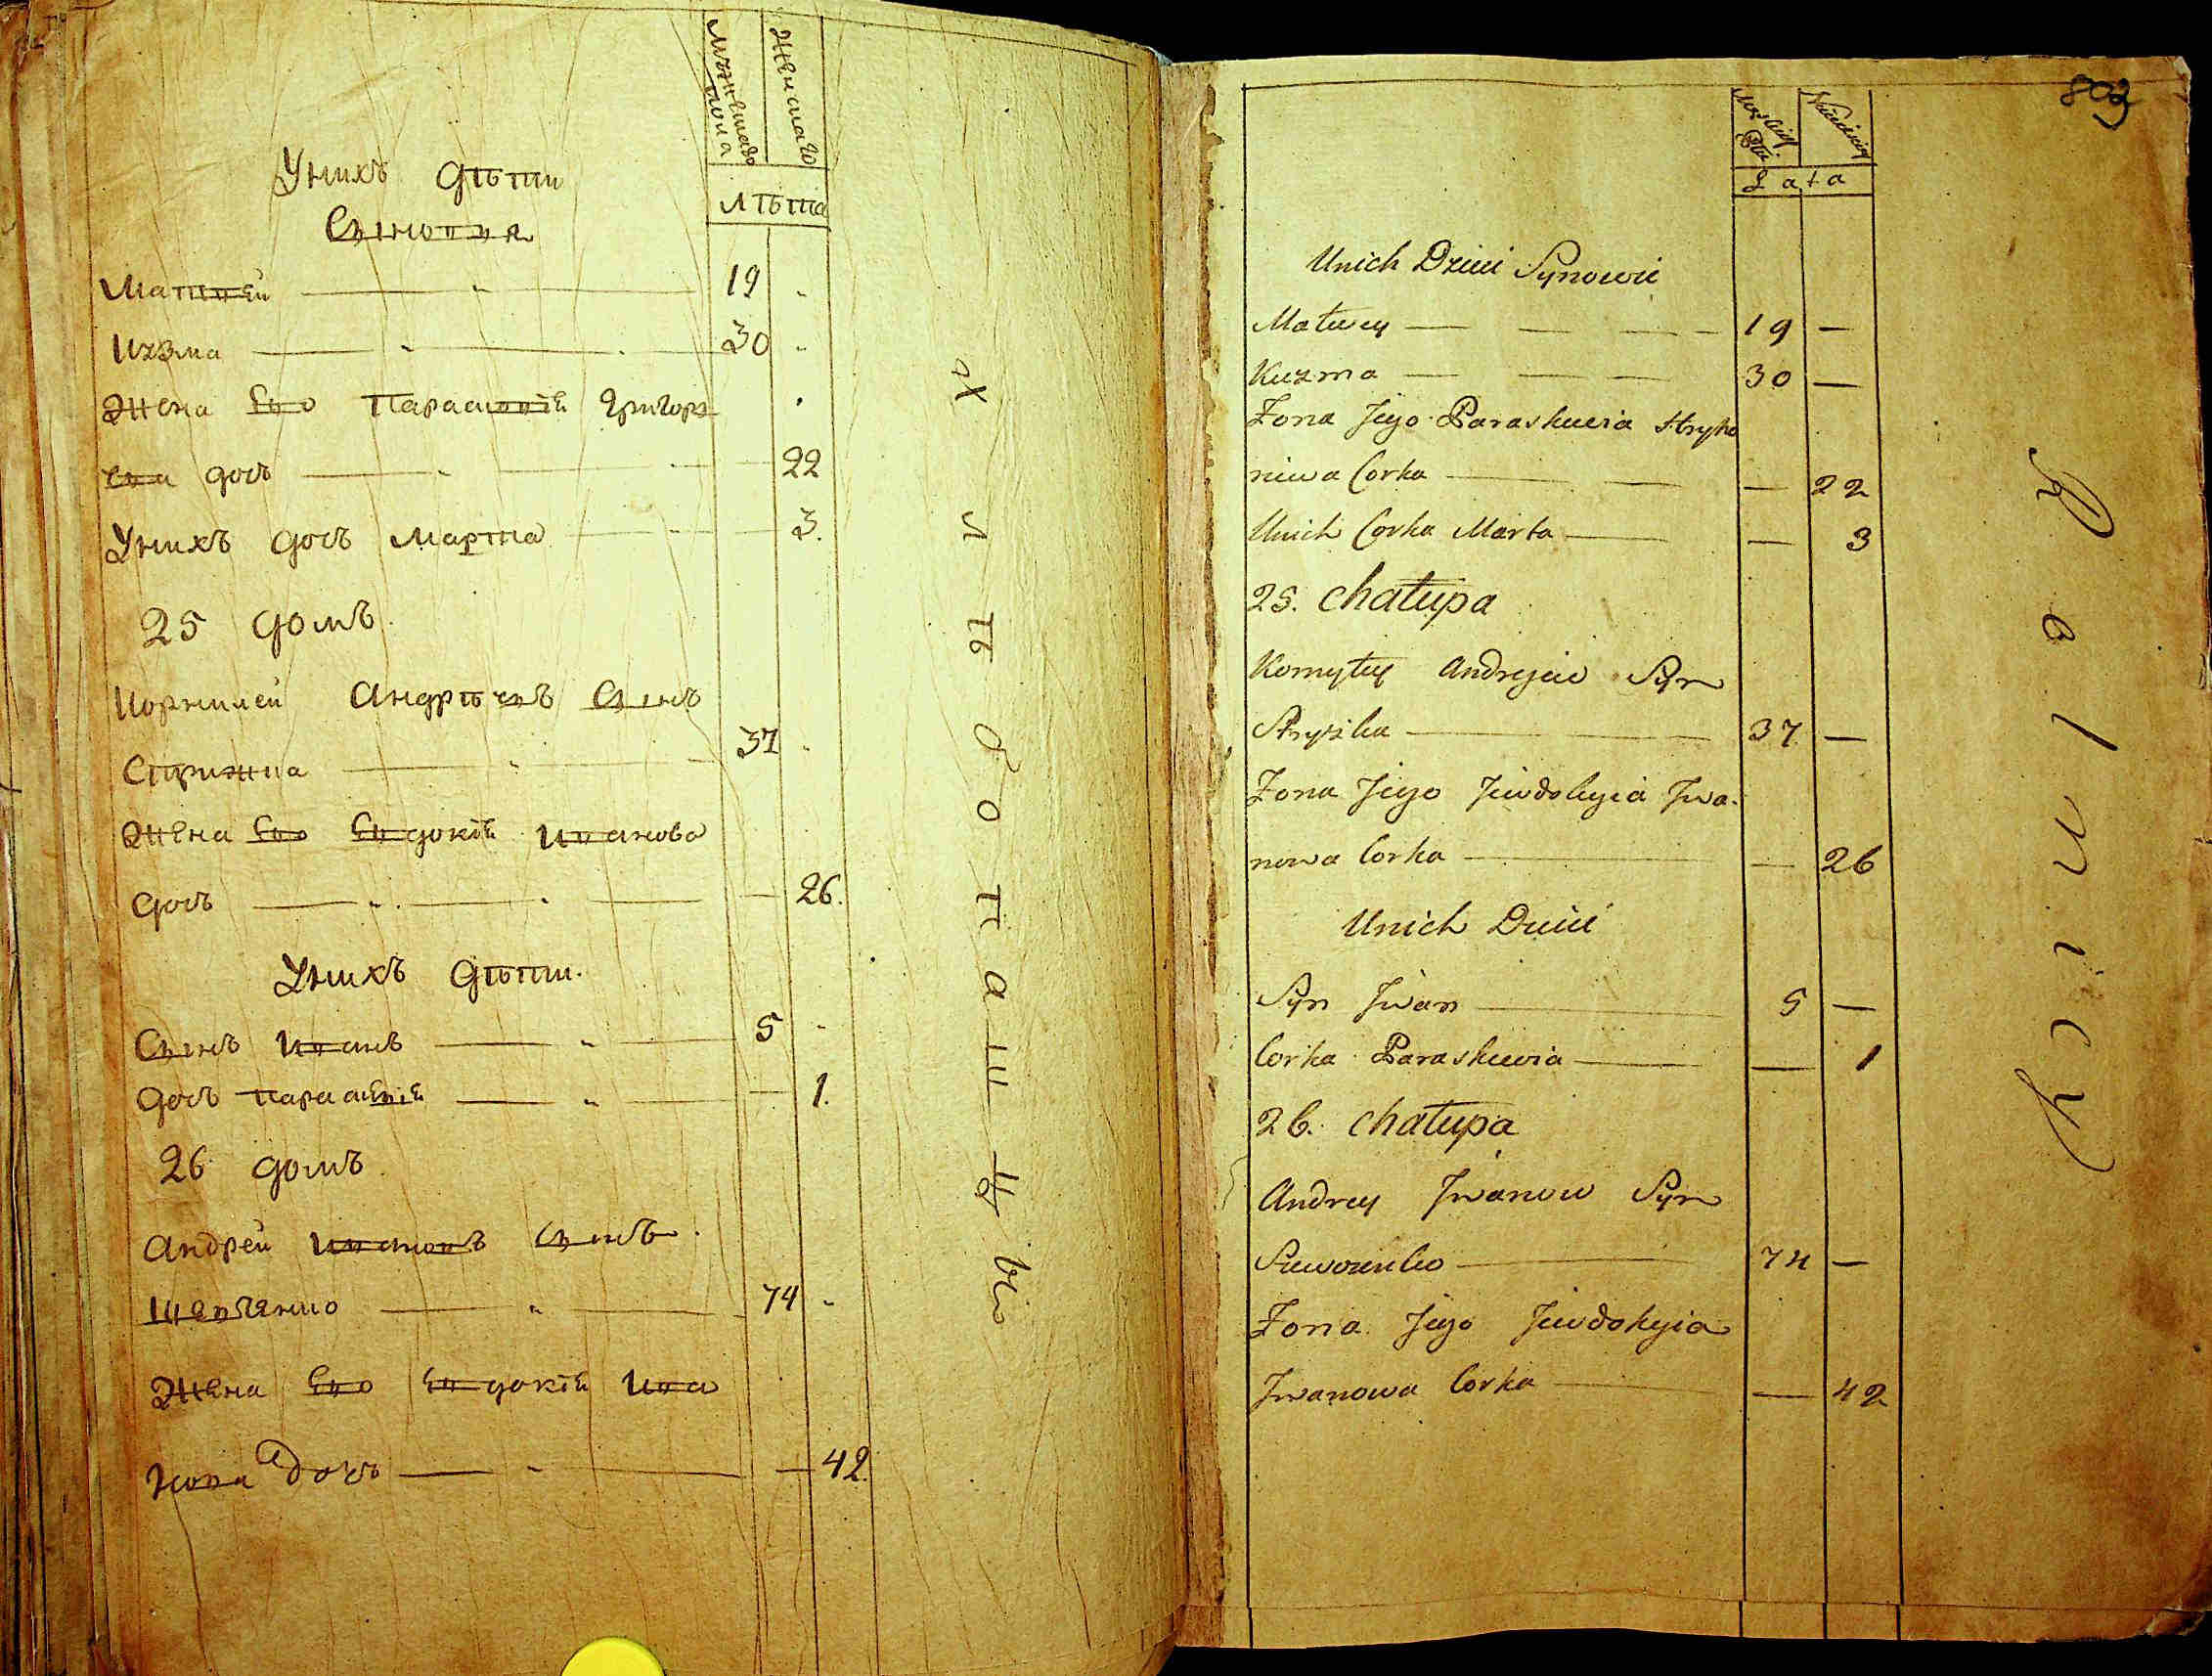 Мужескаго
пола
Женскаго
Лѣта
Унихъ Дѣти
Сыновья
Матвей — 19
Кузма — 30
Жена Его Параскевія Григорь
ева дочь — 22
Унихъ дочь Марта — 3.
25 домъ.
Корнилей Андрѣевъ Сынъ
Стрижка — 37
Жена Его Евдокія Иванова
дочь — 26.
Унихъ дѣти.
Сынъ Иванъ — 5
дочь Параскевія — 1.
26 домъ
Андрей Ивановъ Сынъ.
Шевченко — 74
Жена Его Евдокія Ива
нова дочь — 42.
Хлѣбопашцы
803
Lata
Unich Dzieci Synowie
Matwey — 19 —
Kuzma — 30 —
Żona Jego Paraskiewia Hryho
riewa Corka — 22
Unich Corka Marta — 3
25. Chałupa
Kornyłey Andrejew Syn
Stryżka — 37 —
Żona Jego Jewdokyia Iwa-
nowa Corka — 26
Unich Dzieci
Syn Iwan — 5 —
Corka Paraskiewia — 1
26. Chałupa
Andrey Iwanow Syn
Szewczenko — 74 —
Żona Jego Jewdokyia
Iwanowa Corka — 42
Rolnicy